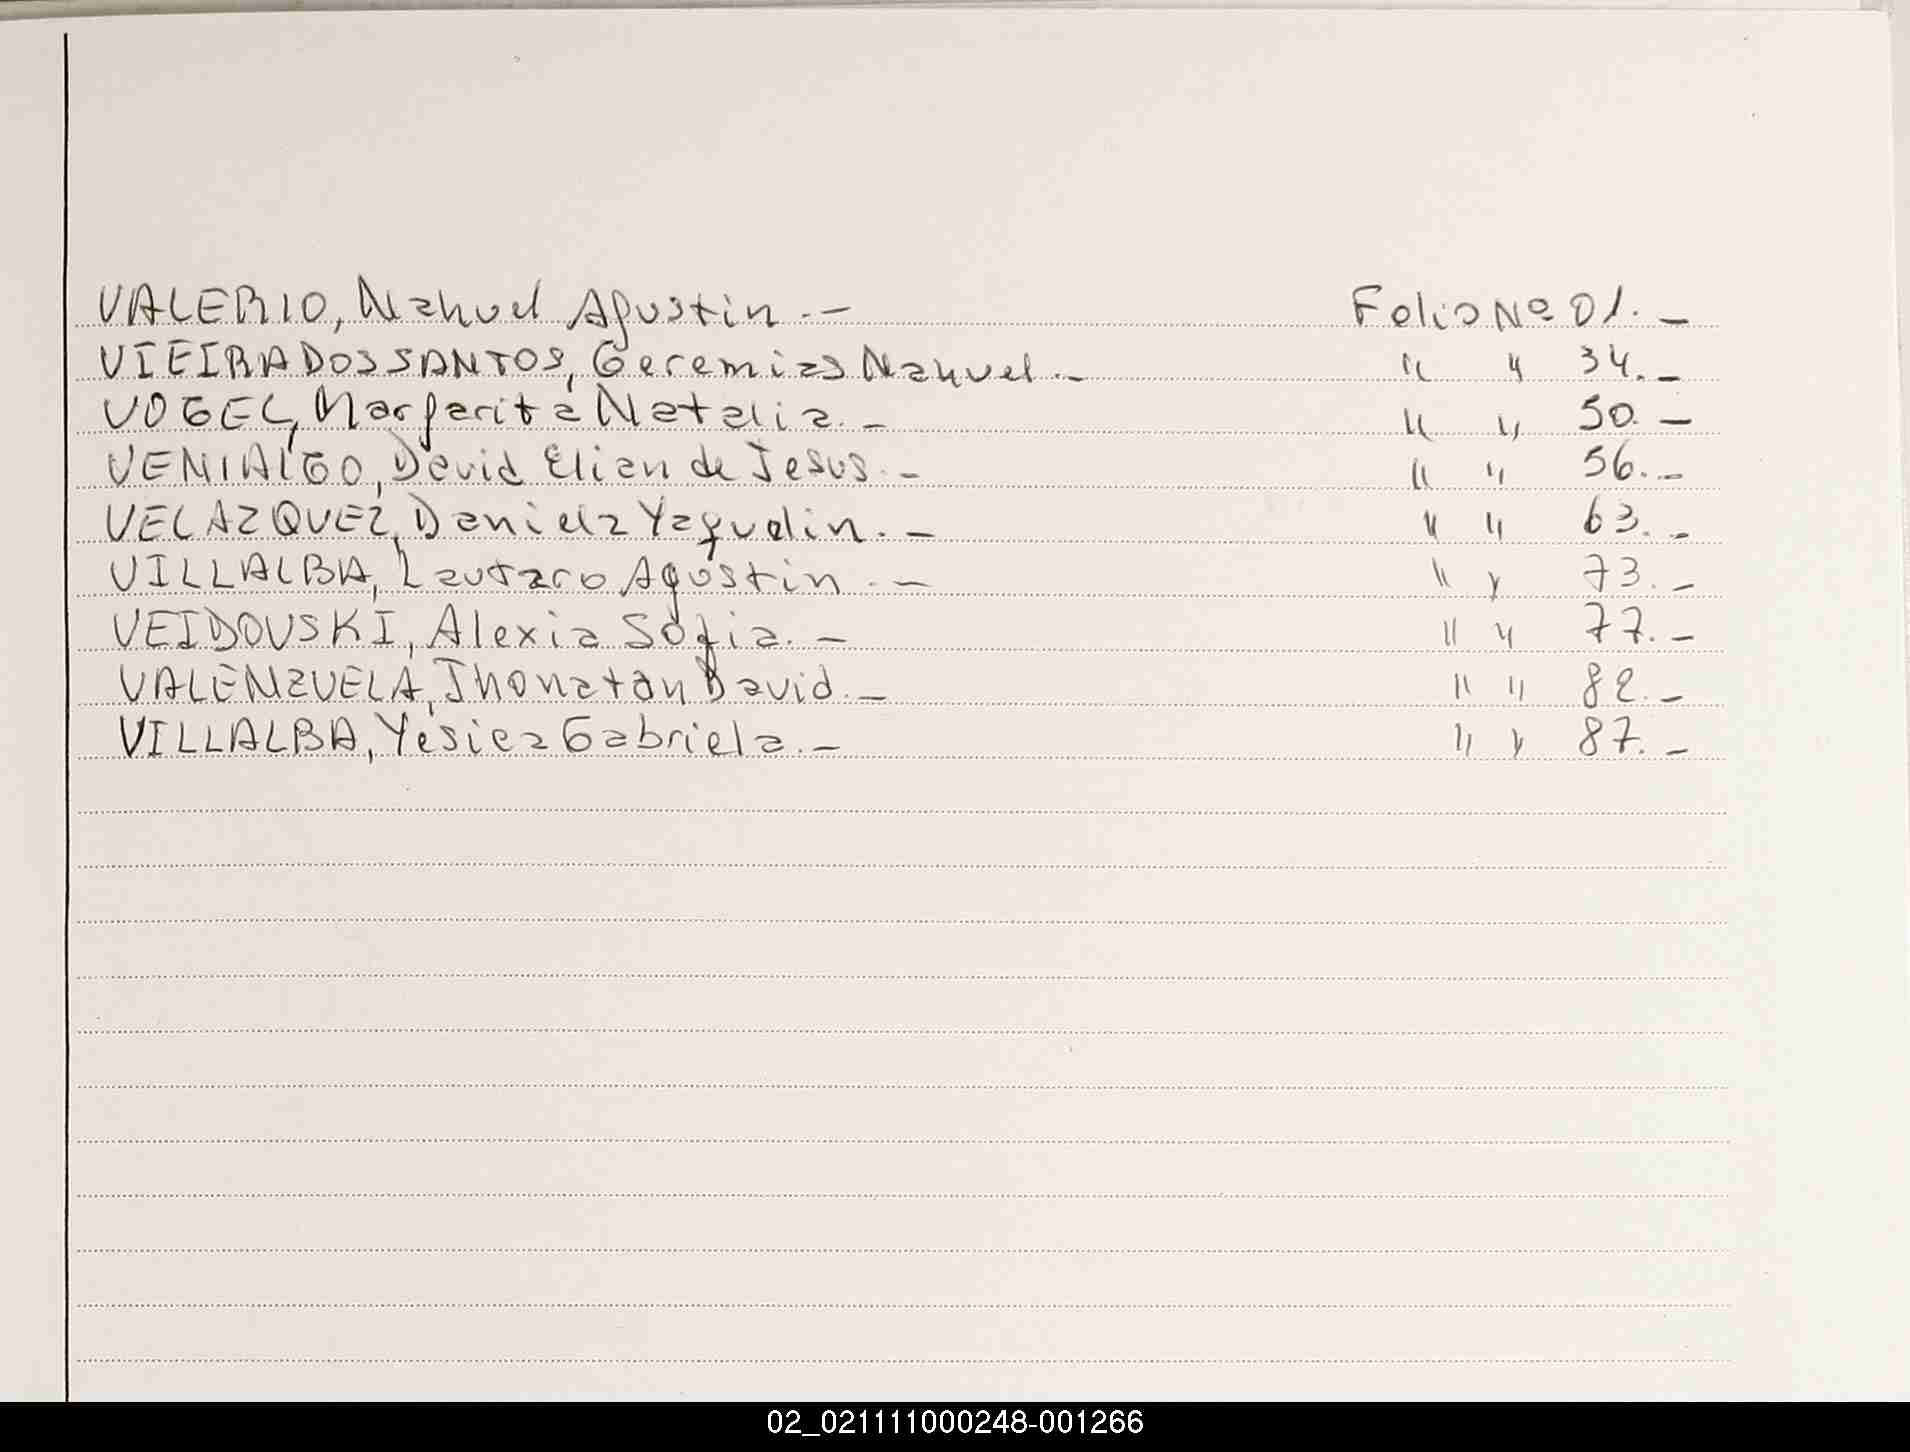 VALERIO, Nahuel Agustin.- Folio Nº 01.-
VIEIRA DOS SANTOS, Geremias Nahuel.- " " 34.-
VOGEL, Margarita Natalia.- " " 50.-
VENIALGO, David Elian de Jesus.- " " 56.-
VELAZQUEZ, Daniela Yaquelin.- " " 63.-
VILLALBA, Lautaro Agustin.- " " 73.-
VEIDOVSKI, Alexia Sofia.- " " 77.-
VALENZUELA, Jhonatan David.- " " 82.-
VILLALBA, Yesica Gabriela.- " " 87.-
02_021111000248-001266